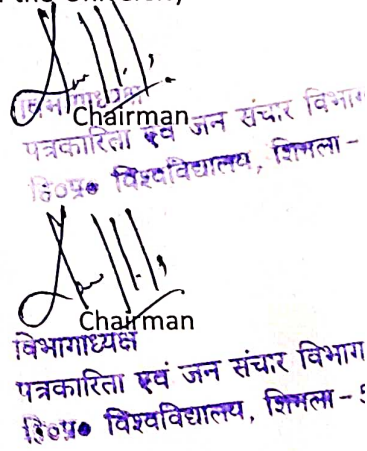 Chairman
विभागाध्यक्ष
पत्रकारिता एवं जन संचार विभाग
हि०प्र० विश्वविद्यालय, शिमला -
Chairman
विभागाध्यक्ष
पत्रकारिता एवं जन संचार विभाग
हि०प्र० विश्वविद्यालय, शिमला - 5